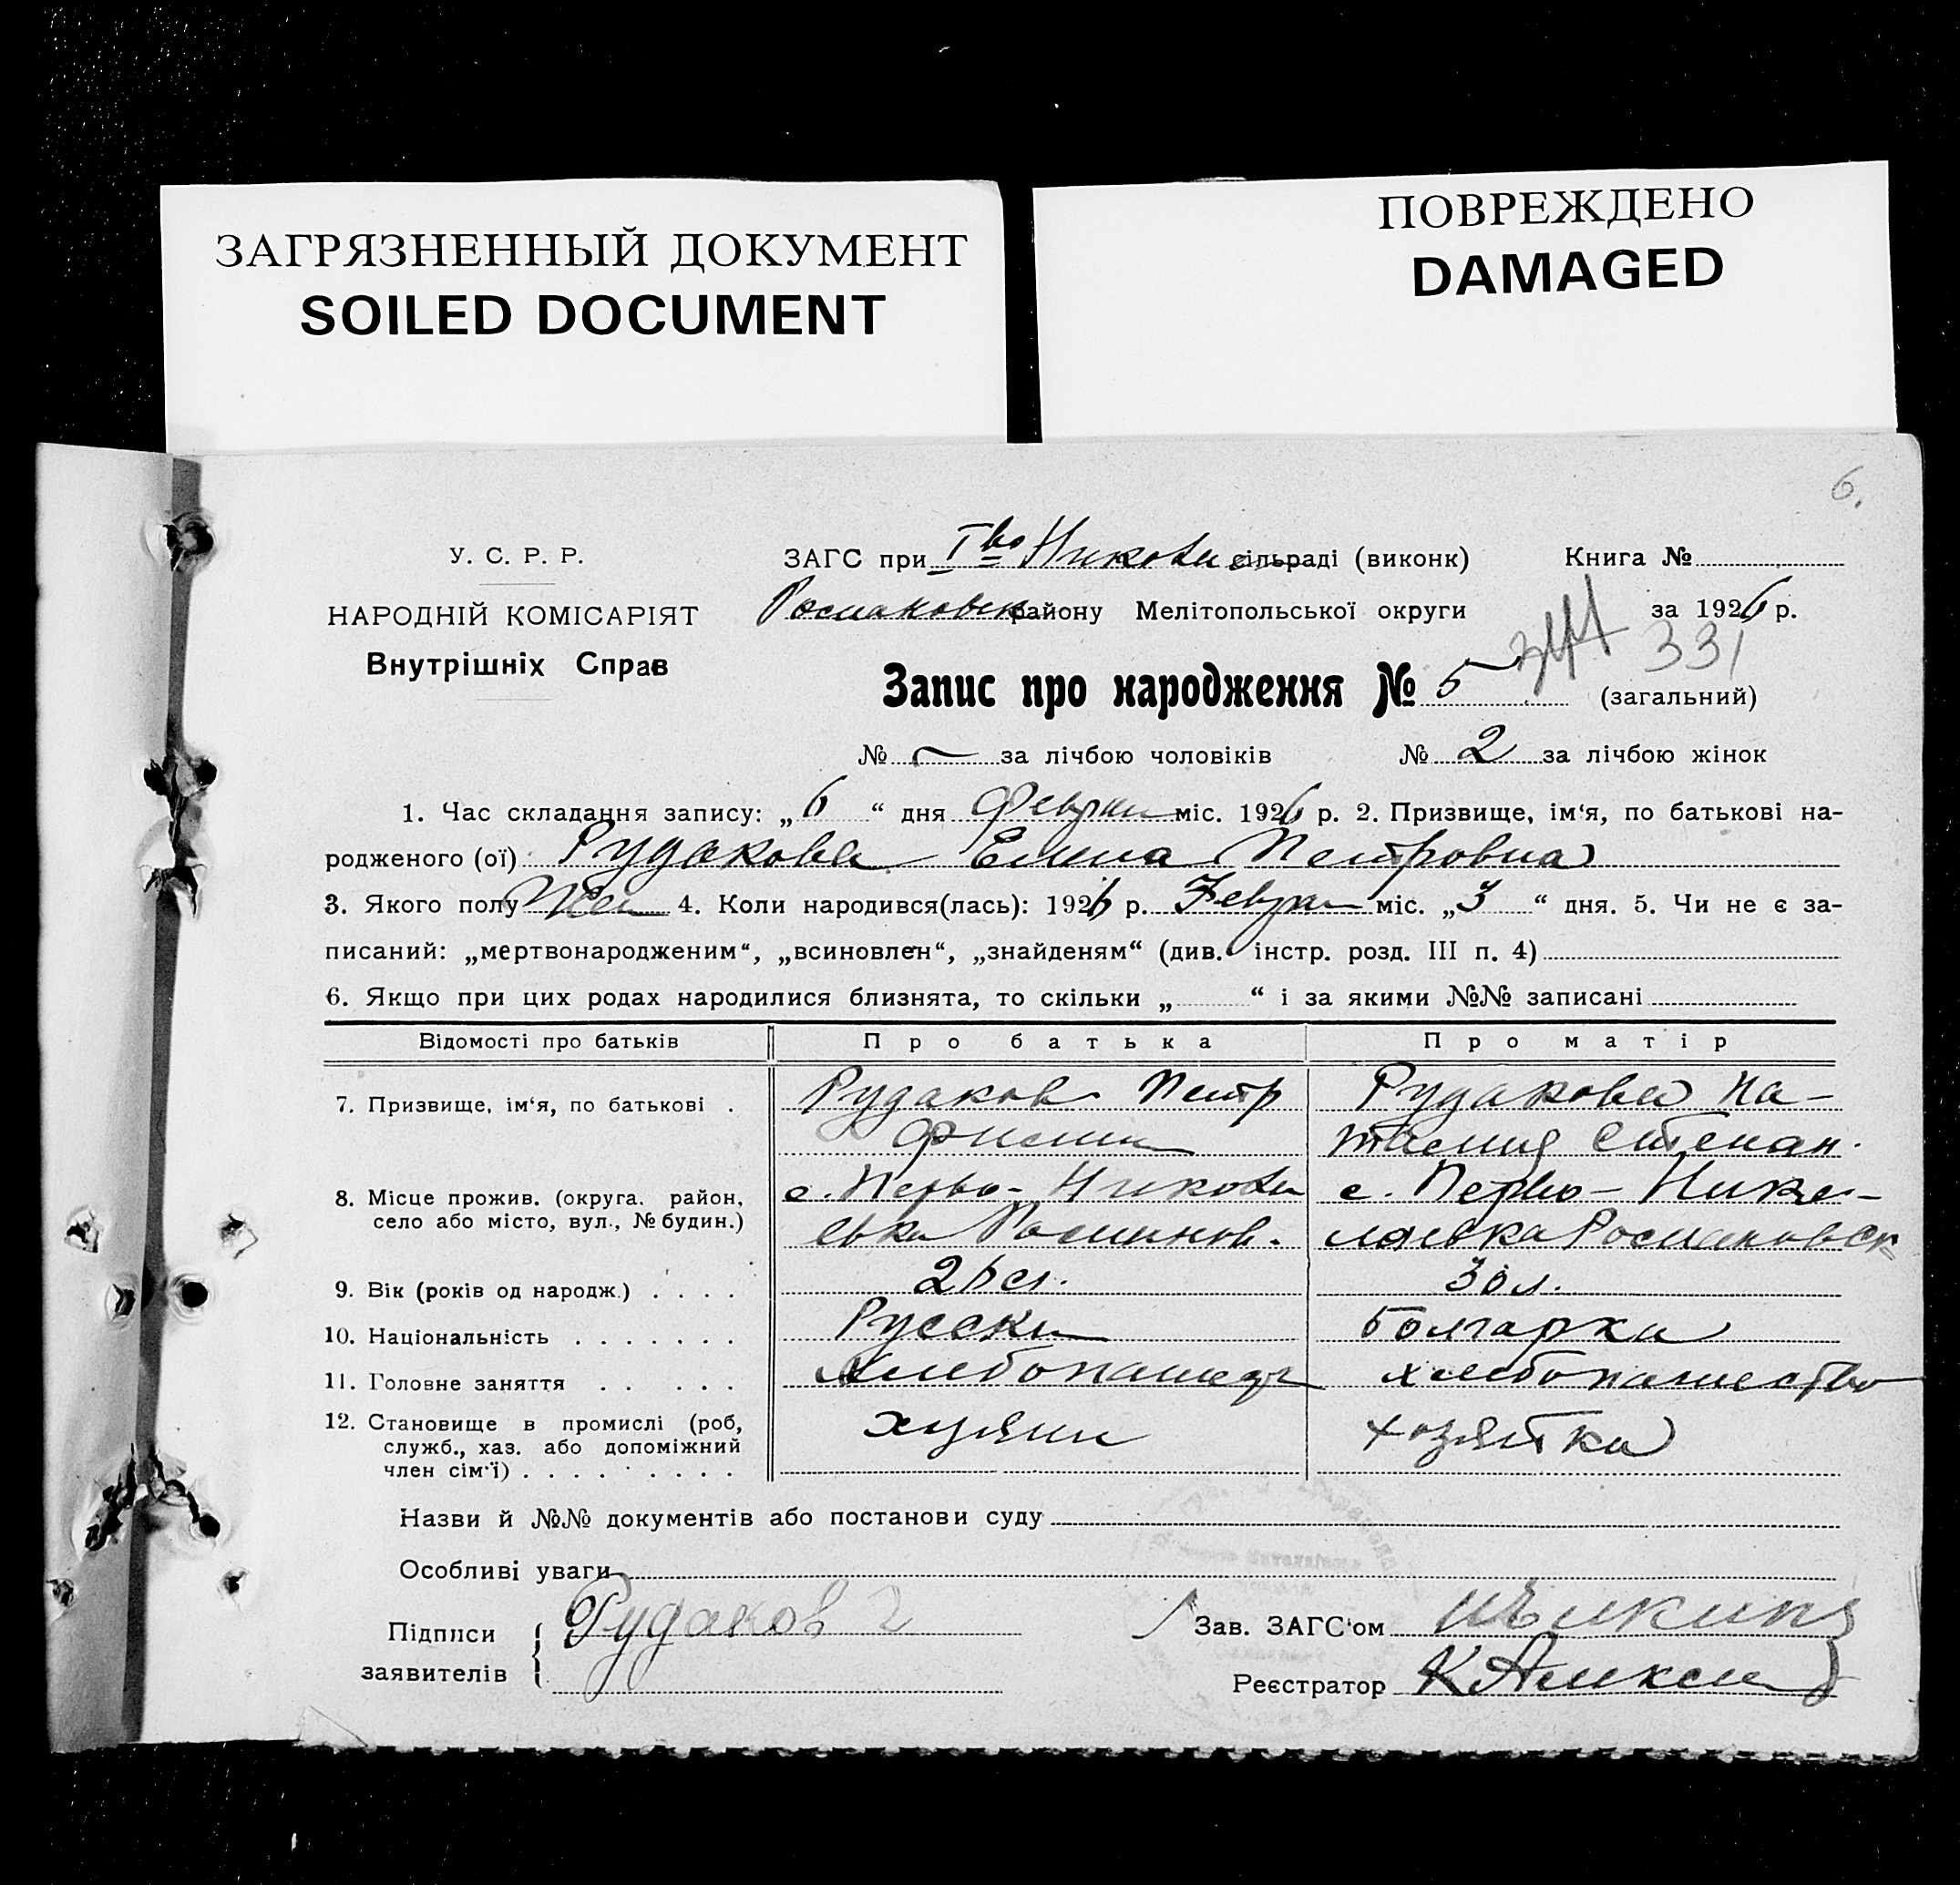 ЗАГРЯЗНЕННЫЙ ДОКУМЕНТ
SOILED DOCUMENT
ПОВРЕЖДЕНО
DAMAGED
6.
У. С. Р. Р.
НАРОДНІЙ КОМІСАРІЯТ
Внутрішніх Справ
ЗАГС при Iво сільраді (виконк)
району Мелітопольської округи
Книга №
за 1926 р.
331
Запис про народження № 5 (загальний)
№ — за лічбою чоловіків № 2 за лічбою жінок
1. Час складання запису: „6“ дня Феврал міс. 1926 р. 2. Призвище, ім‘я, по батькові на-
родженого (ої) Рудакова Елена Петровна
3. Якого полу Жен 4. Коли народився(лась): 1926 р. Феврал міс. „3“ дня. 5. Чи не є за-
писаний: „мертвонародженим“, „всиновлен“, „знайденям“ (див. інстр. розд. III п. 4)
6. Якщо при цих родах народилися близнята, то скільки „ “ і за якими №№ записані
Відомості про батьків Про батька Про матір
7. Призвище, ім‘я, по батькові . Рудаков Петр Рудакова На-
Степан.
8. Місце прожив. (округа, район, с. Перво- с. Перво-
село або місто, вул., № будин.)
9. Вік (років од народж.) . . . . 26 30 л.
10. Національність . . . . . . . Русски Болгарка
11. Головне заняття . . . . . хлебопашец хлебопашество
12. Становище в промислі (роб, хозяин хозяйка
служб., хаз. або допоміжний
член сім‘ї) . . . . . . . . .
Назви й №№ документів або постанови суду
Особливі уваги
Підписи Рудаков
заявителів
Зав. ЗАГС‘ом
Реєстратор